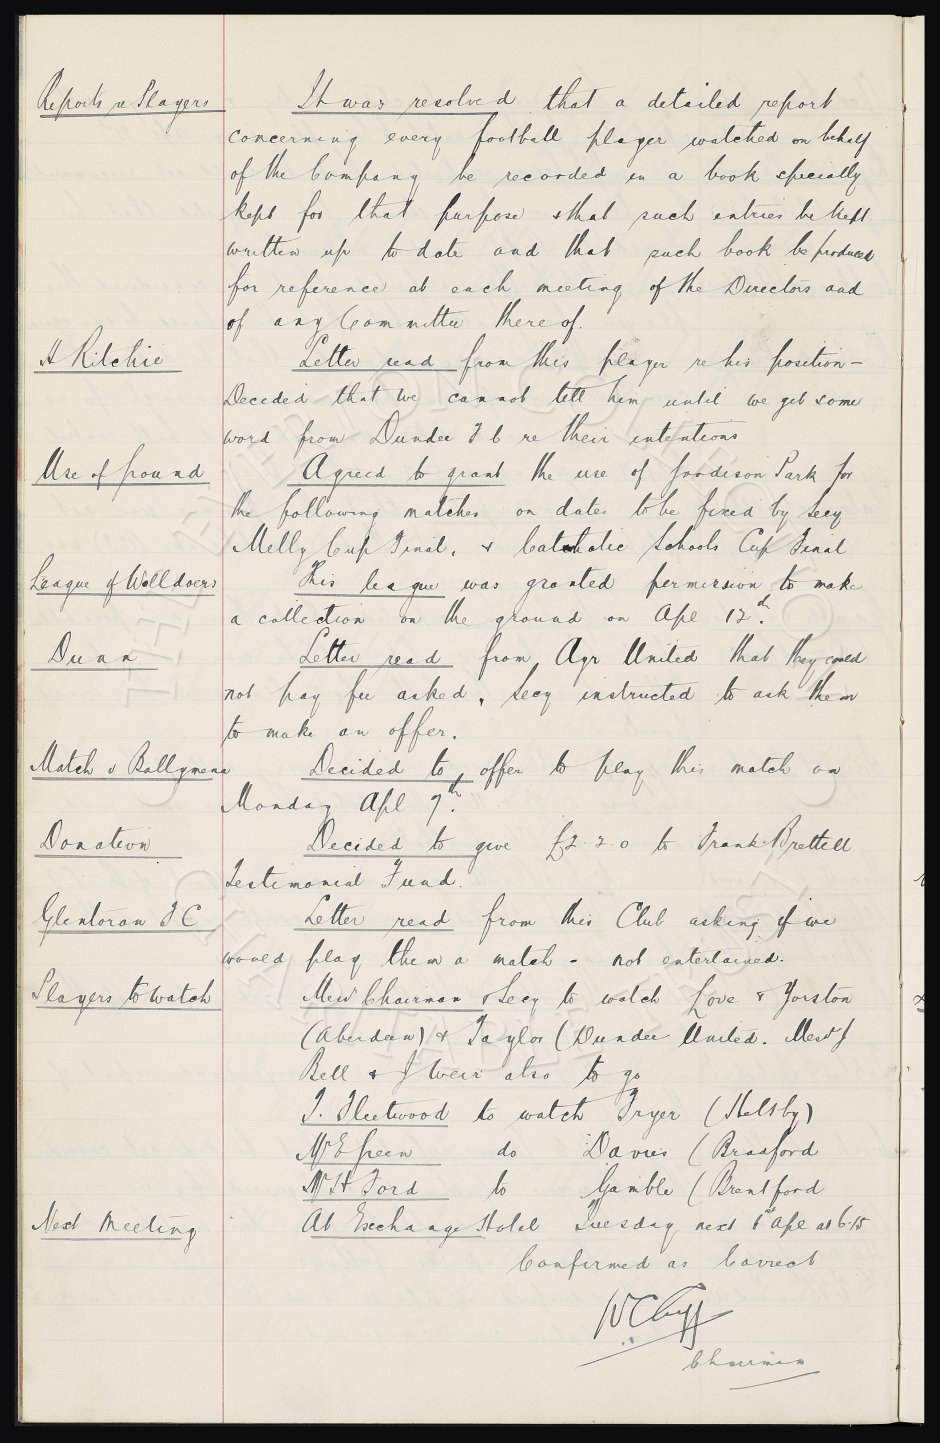 Reports re Players It was resolved that a detailed report
concerning every football player watched on behalf
of the Company be recorded in a book specially
kept for that purpose & that such entries be kept
written up to date and that such book be produced
for reference at each meeting of the Directors and
of any Committee thereof.
H Ritchie Letter read from this player re his position -
Decided that we cannot tell him until we get some
word from Dundee F C re their intentions
Use of Ground Agreed to grant the use of Goodison Park for
the following matches on dates to be fixed by Secy
Melly Cup Final, & Catholic Schools Cup Final
League of Welldoers This league was granted permission to make
a collection on the ground on Apl 12th.
Dunn Letter read from Ayr United that they could
not pay fee asked, Secy instructed to ask them
to make an offer.
Match v Ballymena Decided to offer to play this match on
Monday Apl 7th.
Donation Decided to give £2.2.0 to Frank Brettell
Testimonial Fund.
Glentoran F C Letter read from this Club asking if we
would play them a match - not entertained.
Players to watch Messrs Chairman & Secy to watch Love & Yorston
(Aberdeen) & Taylor (Dundee United. Messrs
Bell & Weir also to go
T. Fleetwood to watch Fryer (Helsby)
Mr E Green do Davies (Bradford
Mr H Ford to Gamble (Brentford
Next Meeting At Exchange Hotel Tuesday next 1st Apl at 6.15
Confirmed as Correct
W C Cuff
Chairman